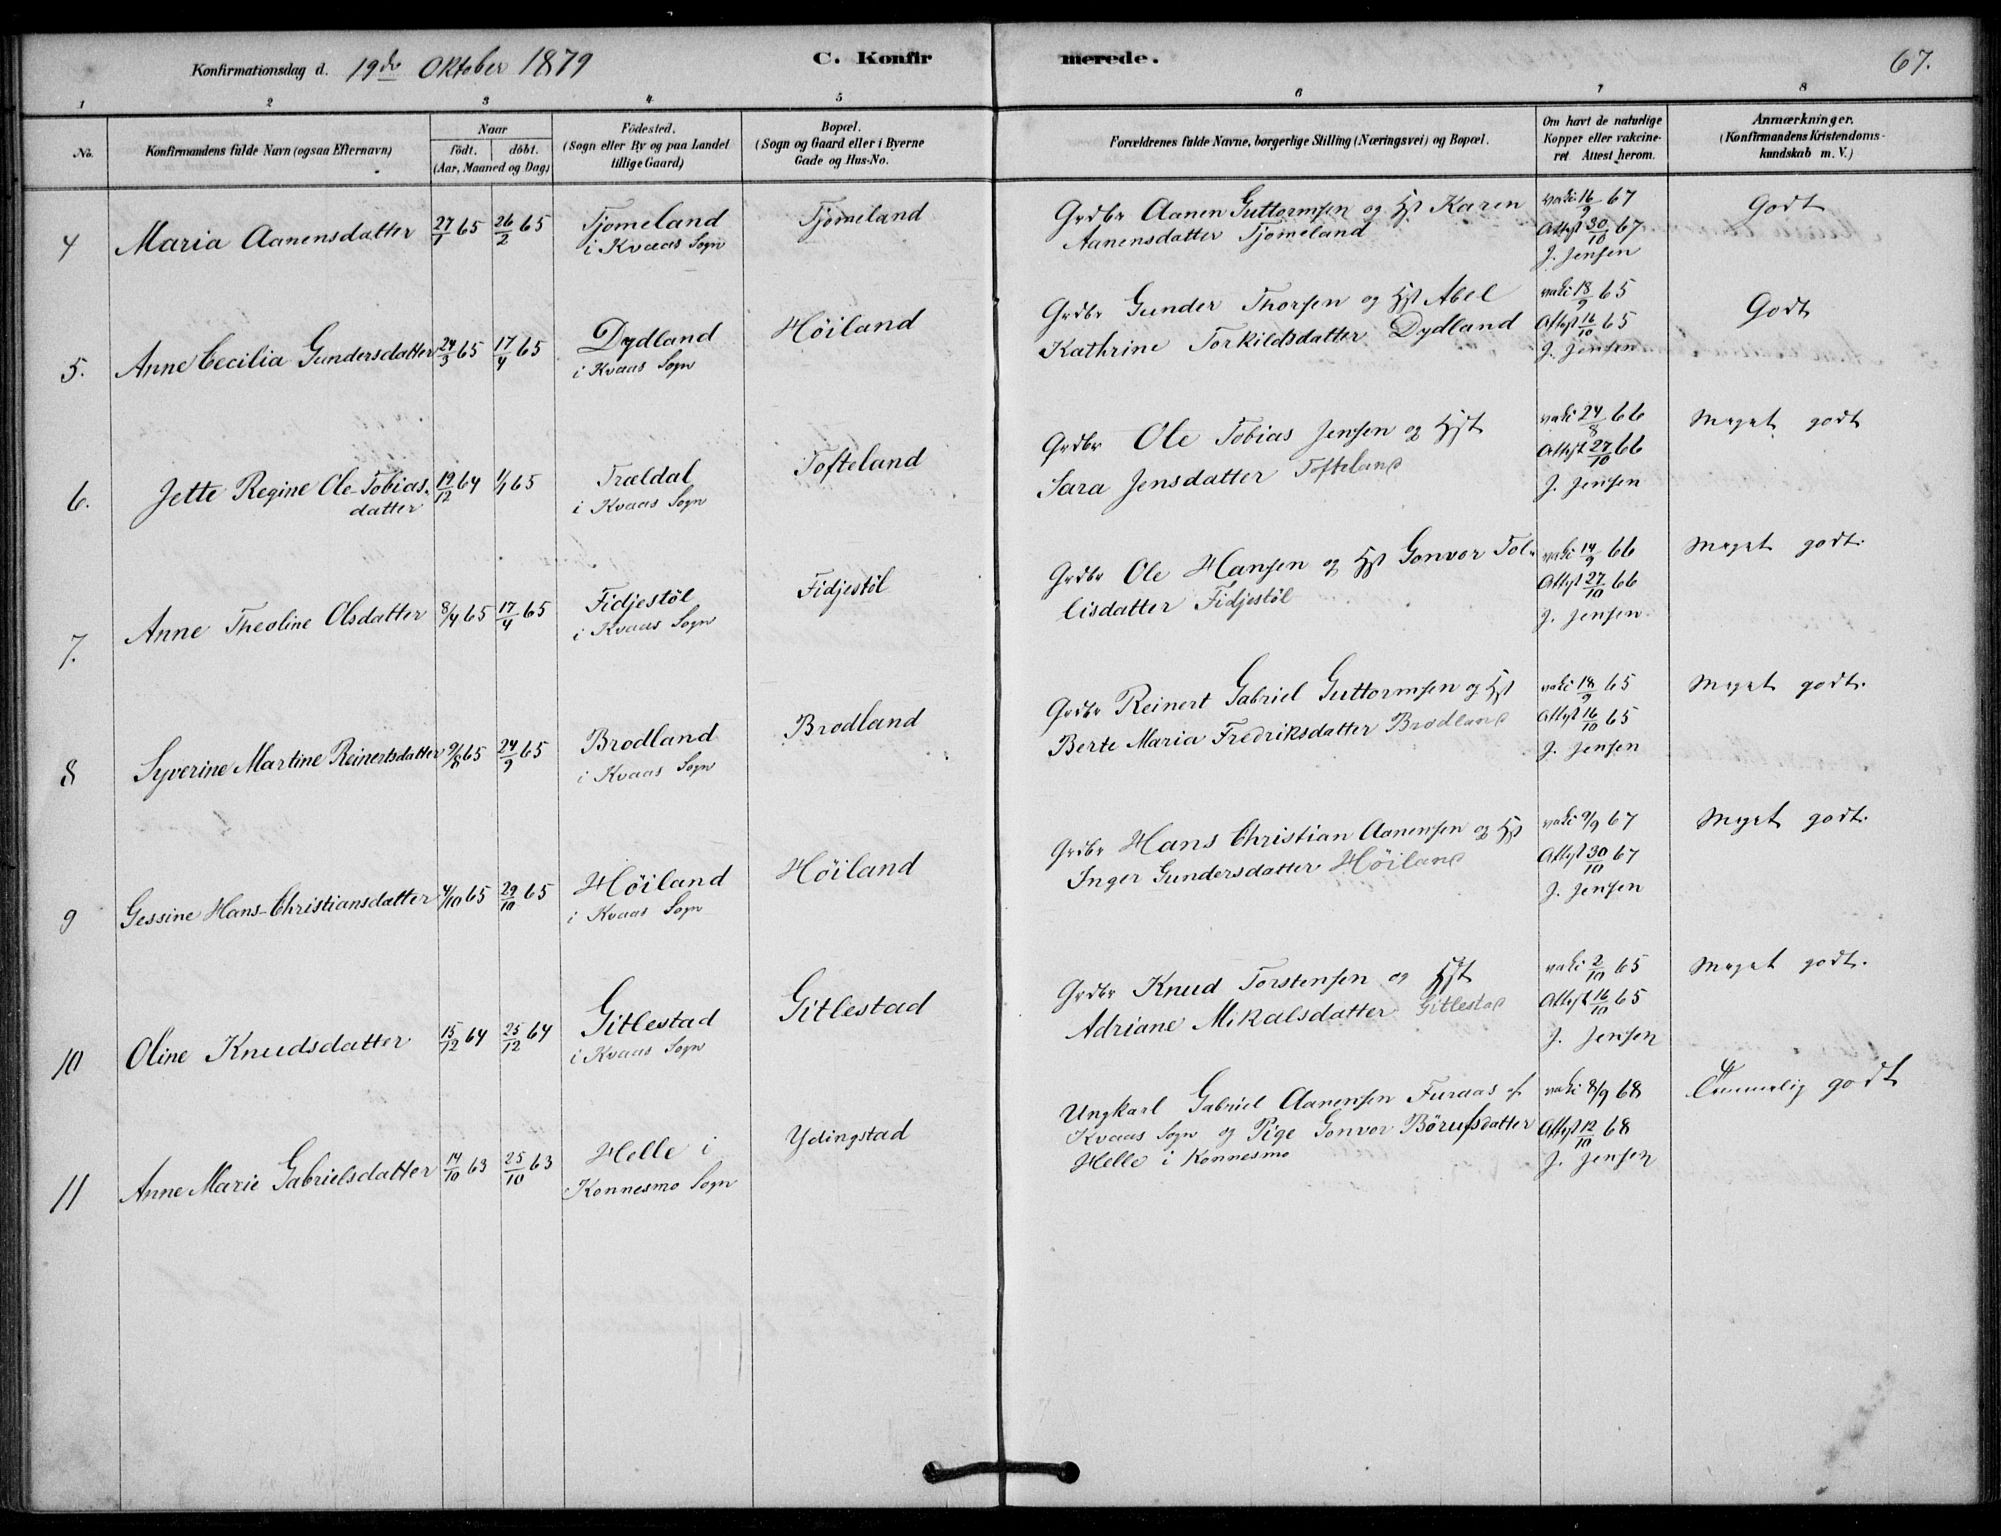 Konfirmationsdag d. 19de Oktober 1879
C. Konfirmerede.
67.
1 2 3 4 5 6 7 8
No.
Konfirmandens fulde Navn (ogsaa Efternavn)
Naar
födt. döbt.
(Aar, Maaned og Dag)
Födested.
(Sogn eller By og paa Landet
tillige Gaard)
Bopæl.
(Sogn og Gaard eller i Byerne
Gade og Hus-No.
Forældrenes fulde Navne, borgerlige Stilling (Næringsvei) og Bopæl.
Om havt de naturlige
Kopper eller vakcine-
ret Attest herom.
Anmærkninger.
(Konfirmandens Kristendoms-
kundskab m. V.)
4 Maria Aanensdatter 27/1 65 26/2 65
Tjomeland
i Kvaas Sogn
Tjomeland
Grdbr Aanen Guttormsen og Hst Karen
Aanensdatter Tjomeland
vaki 16/9 67
Attest 30/10 67
J. Jensen
Godt
5. Anne Cecilia Gundersdatter 24/3 65 17/4 65
Dydland
i Kvaas Sogn
Höiland
Grdbr Gunder Thorsen og Hst Abel
Kathrine Torkildsdatter Dydland
vaki 18/9 65
Attest 16/10 65
J. Jensen
Godt
6. Jette Regine Ole-Tobias-
datter
19/12 64 1/1 65
Trældal
i Kvaas Sogn
Tofteland
Grdbr Ole Tobias Jensen og Hst
Sara Jensdatter Tofteland
vaki 24/8 66
Attest 27/10 66
J. Jensen
Meget godt
7. Anne Theoline Olsdatter 8/4 65 17/4 65
Fidjestöl
i Kvaas Sogn
Fidjestöl
Grdbr Ole Hansen og Hst Gonvor Tol-
lisdatter Fidjestöl
vaki 14/9 66
Attest 27/10 66
J. Jensen.
Meget godt.
8 Syverine Martine Reinertsdatter 9/8 65 24/9 65
Brodland
i Kvaas Sogn
Brodland
Grdbr Reinert Gabriel Guttormsen og Hst
Berte Maria Fredriksdatter Brodland
vaki 18/9 65
Attest 16/10 65
J. Jensen
Meget godt.
9 Gessine Hans-Christiansdatter 4/10 65 29/10 65
Höiland
i Kvaas Sogn
Höiland
Grdbr Hans Christian Aanensen og Hst
Inger Gundersdatter Höiland
vaki 9/9 67
Attest 30/10 67
J. Jensen
Meget godt.
10 Oline Knudsdatter 15/12 64 25/12 64
Gitlestad
i Kvaas Sogn
Gitlestad
Grdbr Knud Torstensen og Hst
Adriane Mikalsdatter Gitlestad
vaki 2/10 65
Attest 16/10 65
J. Jensen
Meget godt.
11 Anne Marie Gabrielsdatter 14/10 63 25/10 63
Helle i
Konnesmo Sogn
Ydingstad
Ungkarl Gabriel Aanensen Furaas af
Kvaas Sogn og Pige Gonvor Börufsdatter
Helle i Konnesmo
vaki 8/9 68
Attest 12/10 68
J. Jensen
Temmelig godt